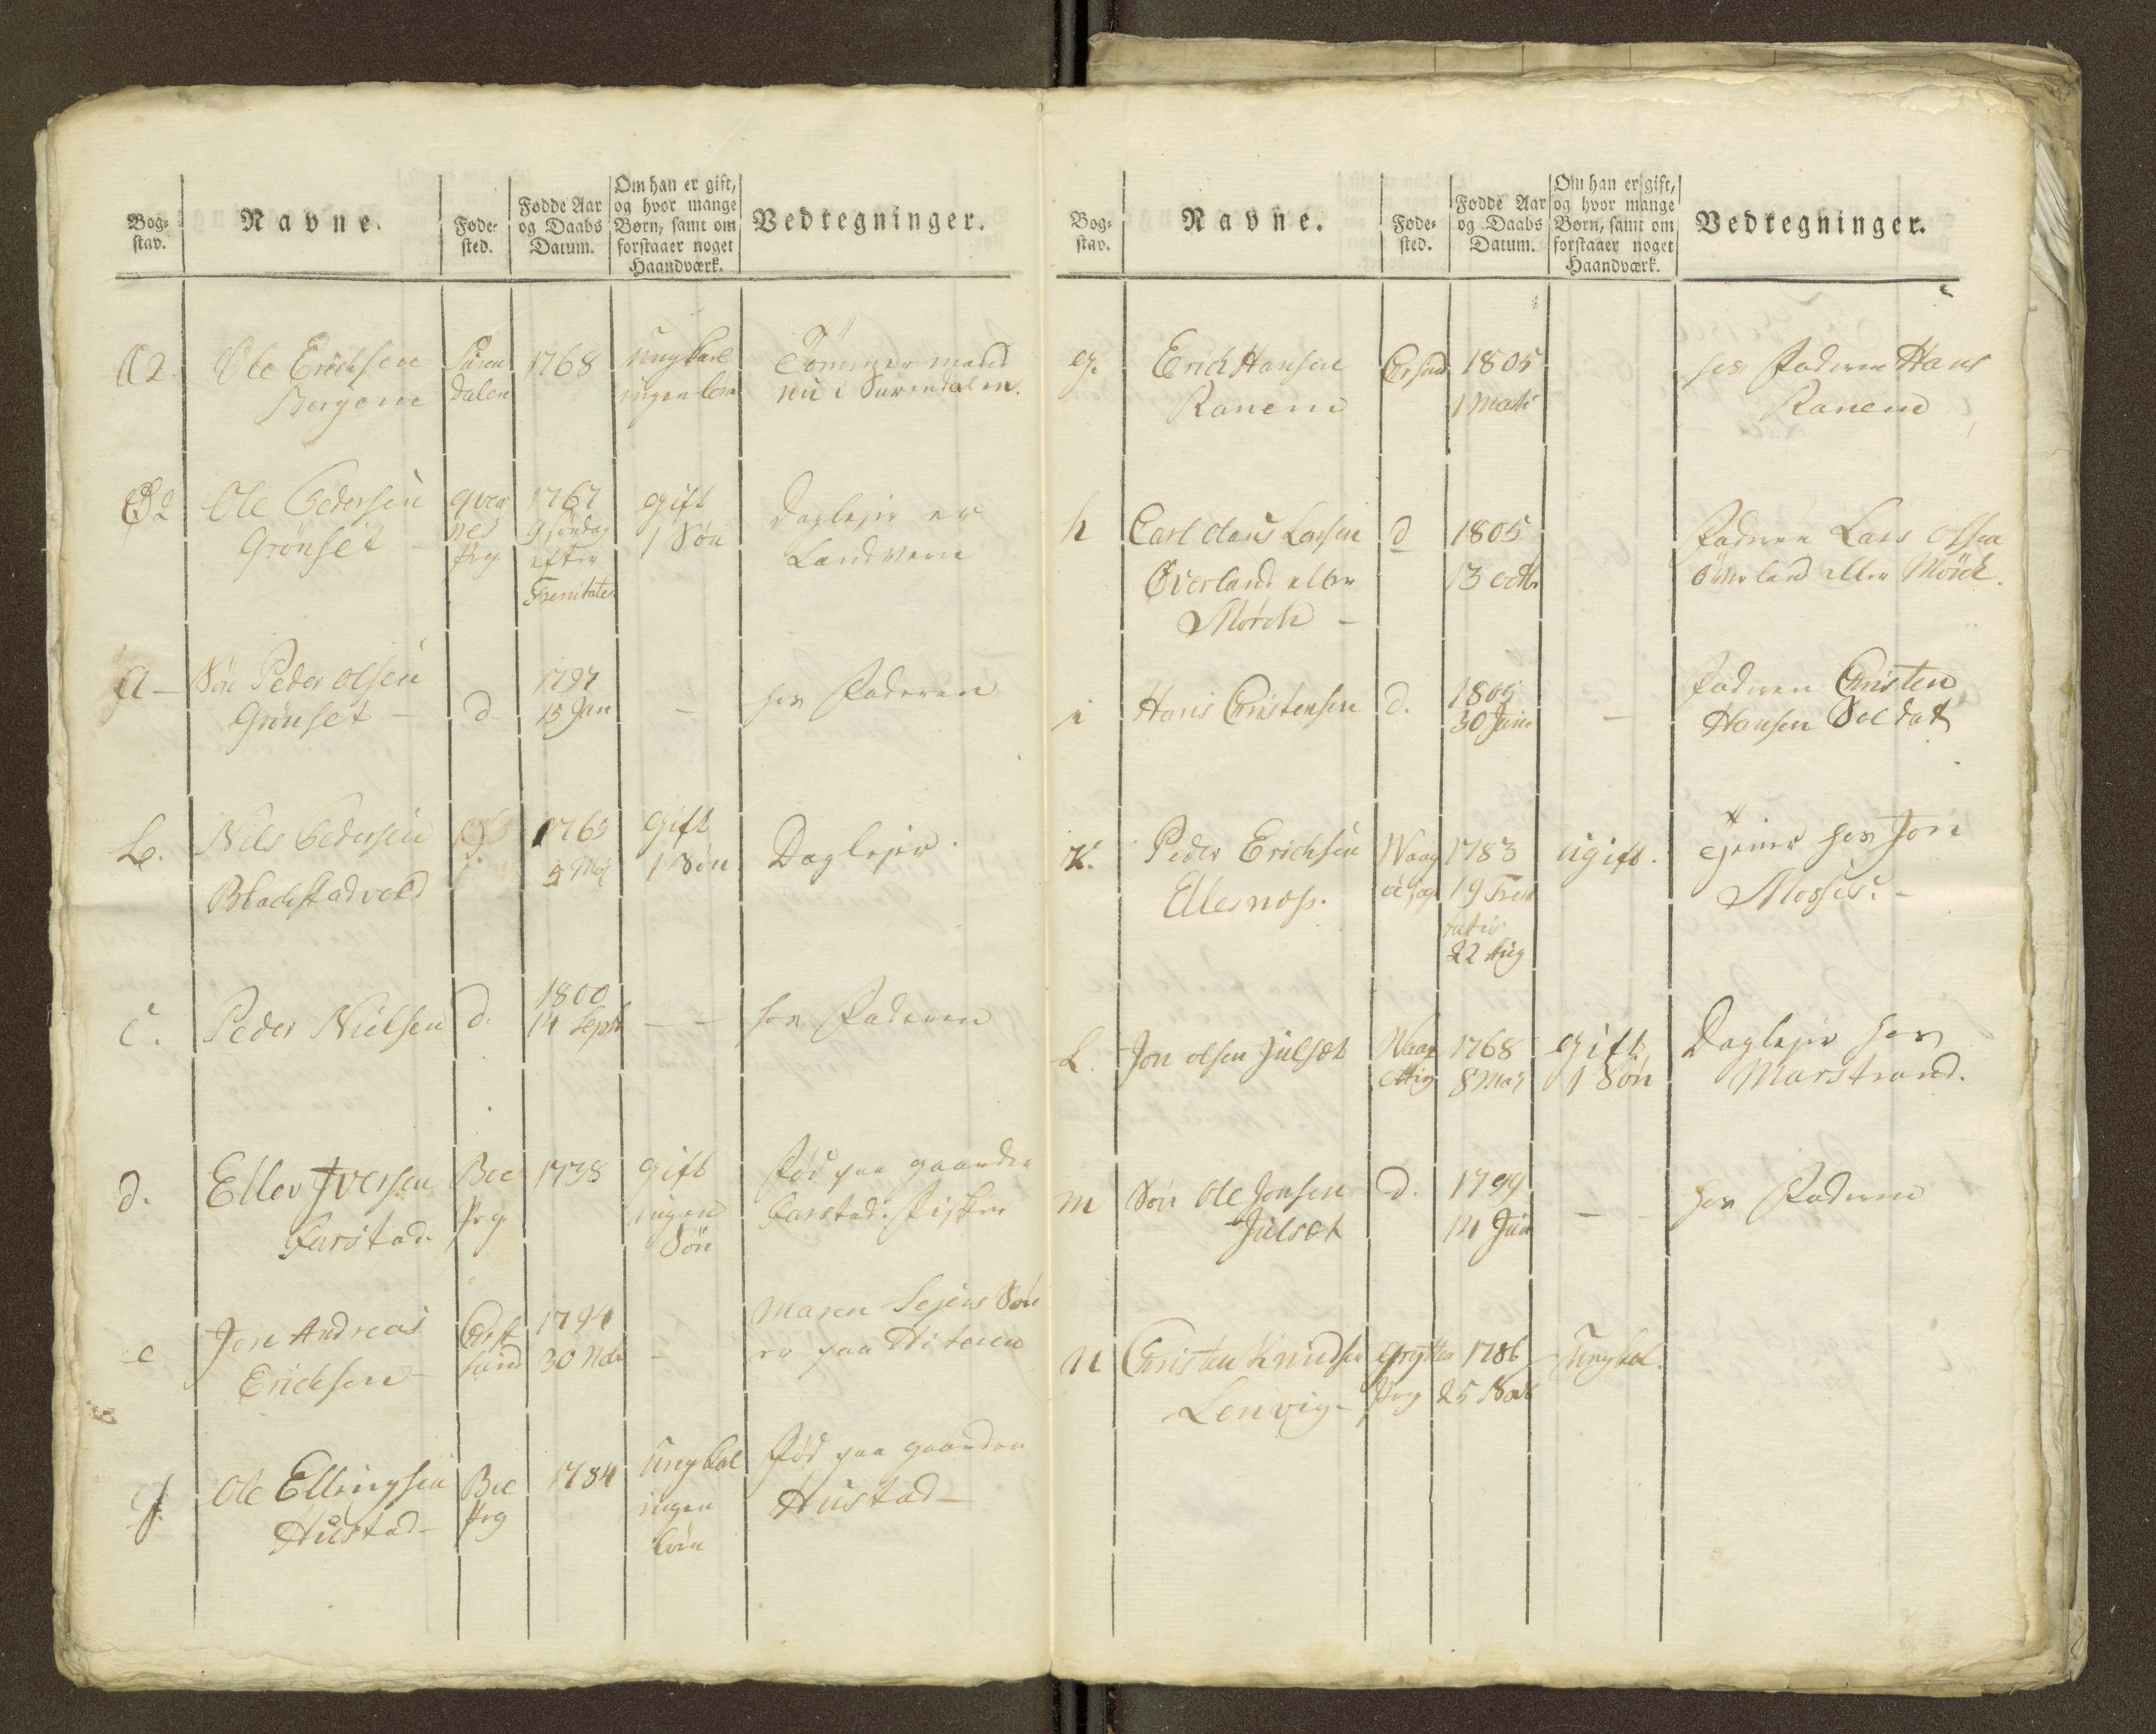 Bog-
stav.
Navne.
Føde-
sted.
Fødde Aar
og Daabs
Datum.
Om han er gift,
og hvor mange
Børn, samt om
forstaaer noget
Haandværk.
Vedtegninger.
Ole Erichsen
Bergene
Suren
dalen
1768
ungkarl
ingen børn
Tømmer mand
nu i Surendalen.
Ole Pedersen
Grønset -
qver
nes
Prg.
1767
9 søndag
efter
Trenitatis
gift
1 Søn
Daglejer er
Landvern
a -
Søn Peder olsen
Grønset -
d
1797
15 Jan
-
hos Faderen
b.
Nils Pedersen
Blachstadvold
1765
5 Maj
Gift
1 Søn
Daglejer.
c.
Peder Nielsen
d.
1800
14 Septb
- -
hos Faderen
d.
Ellev Iversen
Farstad.
Boe
Prg.
1738
gift
ingen
Søn
Fød paa gaarden
Farstad. Fisker
e
Jon Andreas
Erichsen -
Crist
sund
1794
30 Nov
-
Maren Sejers Søn
er paa Hiteren
f.
Ole Ellingsen
Hustad -
Boe
Prg
1784
Ungkal
ingen
børn
Fød paa gaarden
Hustad -
Bog-
stav.
Navne.
Føde-
sted.
Fødde Aar
og Daabs
Datum.
Om han er gift,
og hvor mange
Børn, samt om
forstaaer noget
Haandværk.
Vedtegninger.
g.
Erich Hansen
Ranem
Crsund
1805
1 Marti
hos Faderen Hans
Ranem
h
Carl Olaus Larsen
Øverland eller
Mørch -
d
1805
13 octb
Faderen Lars Olsen
Øverland eller Mørch.
i
Hans Christensen
d.
1805
30 Juni
-
Faderen Christen
Hansen Soldat
K.
Peder Erichsen
Ellesnæs.
Waag
øe sogn
1783
19 Trini
tatis
22 Aug
ugift.
tjener hos Jon
Moses. -
L.
Jon olsen Julset
1768
8 Maj
gift,
1 Søn
Daglejer hos
Marstrand.
m
Søn Ole Jonsen
Julset
d.
1799
14 Jun
- -
hos Faderen
n
Christen Knudsen
Lenvig -
Grytten
Prg
1786
25
Ungkal.